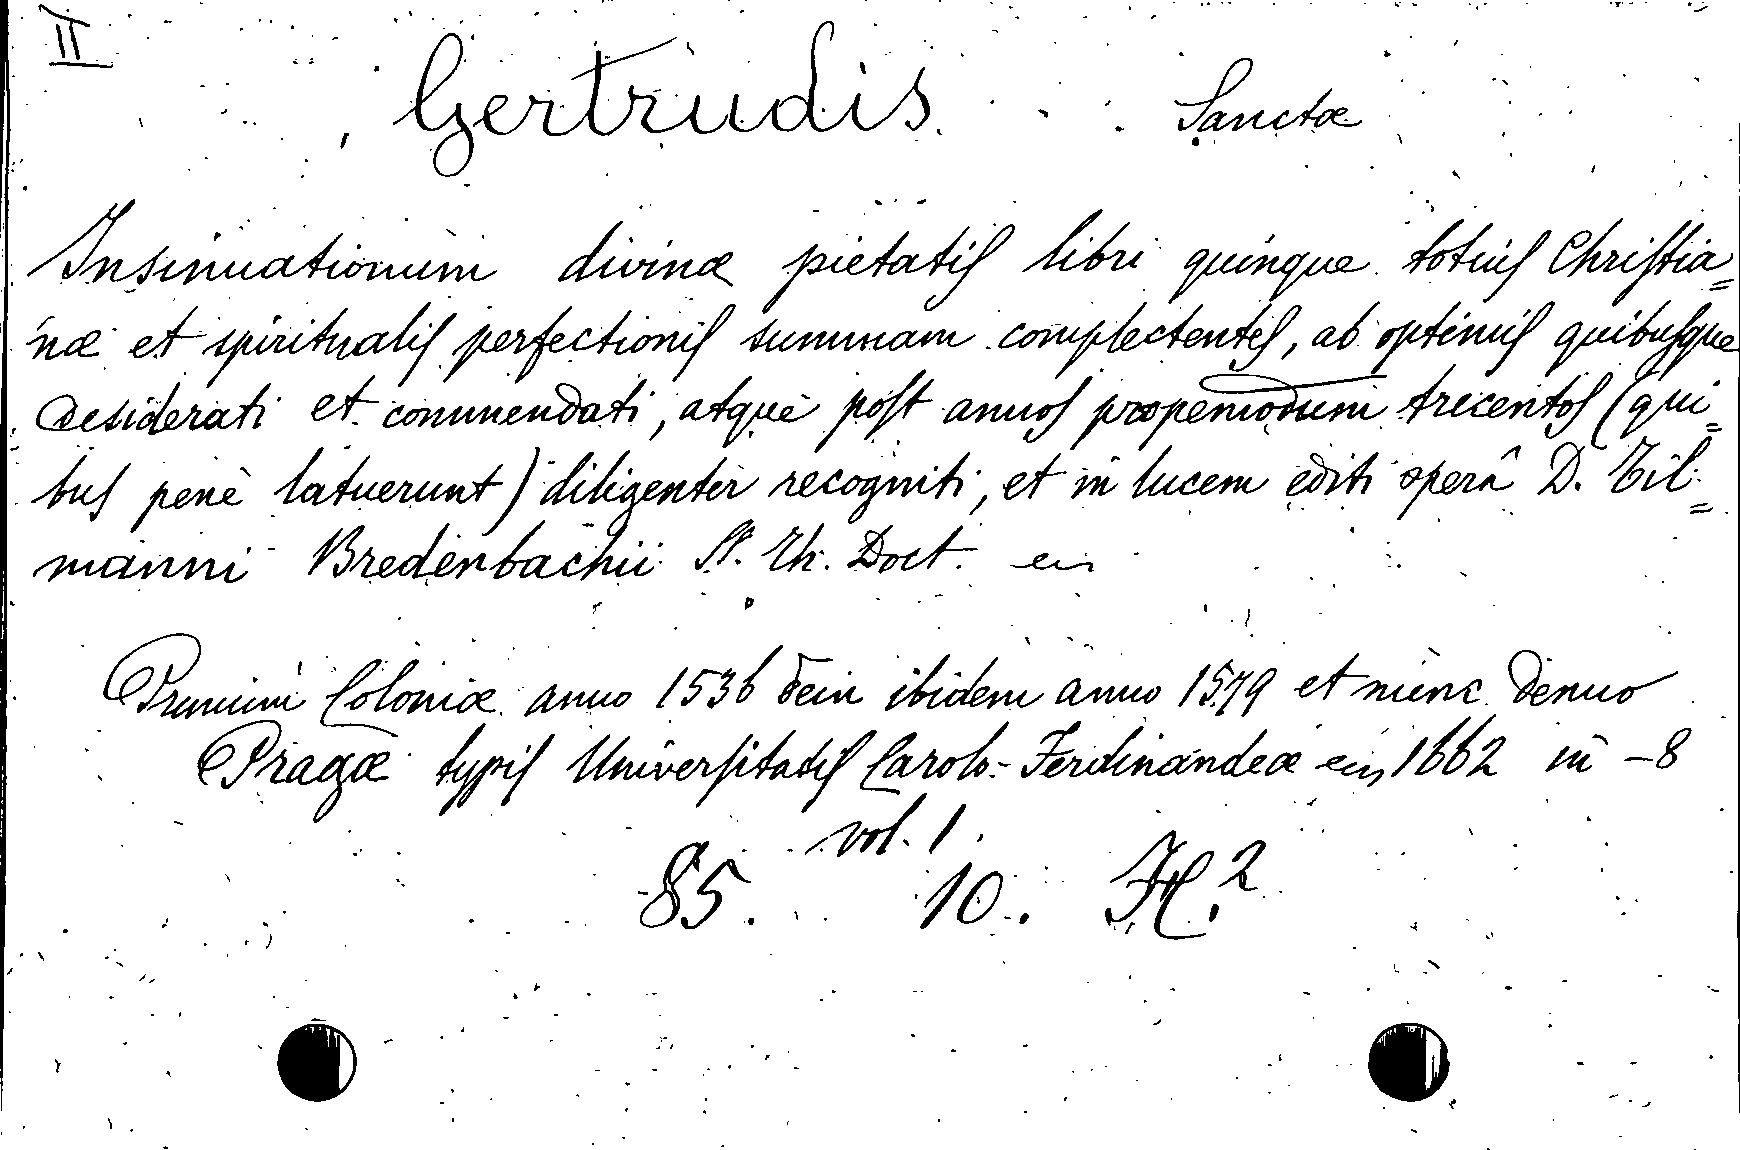 II
Gertrudis Sanctæ
Insinuationum divinæ pietatis libri quinque totius Christia=
næ et spiritualis perfectionis summam complectentes, ab optimis quibusque
desiderati et commendati, atque post annos propemodum trecentos (qui=
bus penè latuerunt) diligenter recogniti, et in lucem editi operâ D. Til=
manni Bredenbachii SS. Th. Doct.
Primum Coloniæ anno 1536 dein ibidem anno 1579 et nunc denuo
Pragæ typis Universitatis Carolo-Ferdinandeæ 1662 in -8
vol. 1.
85. 10. H.2